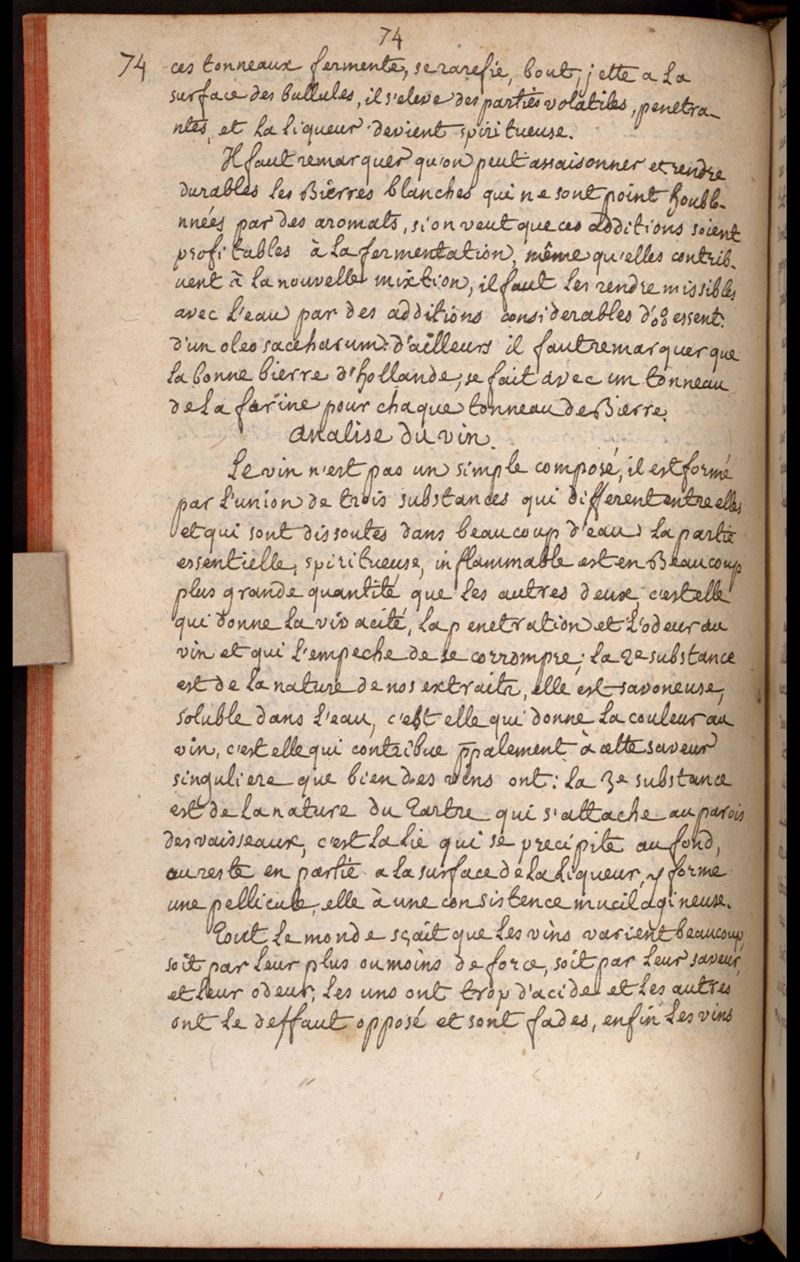 74
74 ces tonneaux fermente, se rarefie, bout, jette a la
surface des bullules, il s'eleve des parties volatiles, penetra-
ntes, et la liqueur devient spiritueuse.
Il faut remarquer qu'on peut assaisonner et rendre
durables les Bierres blanches qui ne sont point houbl-
nnées par des aromats, si on veut que ces additions soient
profitables à la fermentation, même qu'elles contrib-
uent à la nouvelle mixtion, il faut les rendre missibles
avec l'eau par des additions considerables d' essent.
d'un oleo saccharum: d'ailleurs il faut remarquer que
la bonne bierre d'hollande, se fait avec un tonneau
de la farine pour chaque tonneau de Bierre.
analise du vin.
Le vin n'est pas un simple composé, il est formé
par l'union de trois substances qui different entre elles
et qui sont dissoutes dans beaucoup d'eau la partie
essentielle, spiritueuse, inflammable est en Beaucoup
plus grande quantité que les autres deux, c'est elle
qui donne la vivacité, la penetration et l'odeur au
vin et qui l'empeche de se corrompre; la 2e substance
est de la nature de nos extraits, elle est savoneuse,
soluble dans l'eau, c'est elle qui donne la couleur au
vin, c'est elle qui contribue ppalement à cette saveur
singuliere que bien des vins ont: la 3e substance
est de la nature du Tartre qui s'attache au parois
des vaisseaux, c'est la lie qui se precipite au fond,
au reste en partie a la surface de la liqueur, y forme
une pellicule, elle à une consistence mucilagineuse.
Tout le monde sçait que les vins varient beaucoup,
soit par leur plus ou moins de force, soit par leur saveur,
et leur odeur; les uns ont trop d'acide et les autres
ont le deffaut opposé et sont fades, enfin les vins